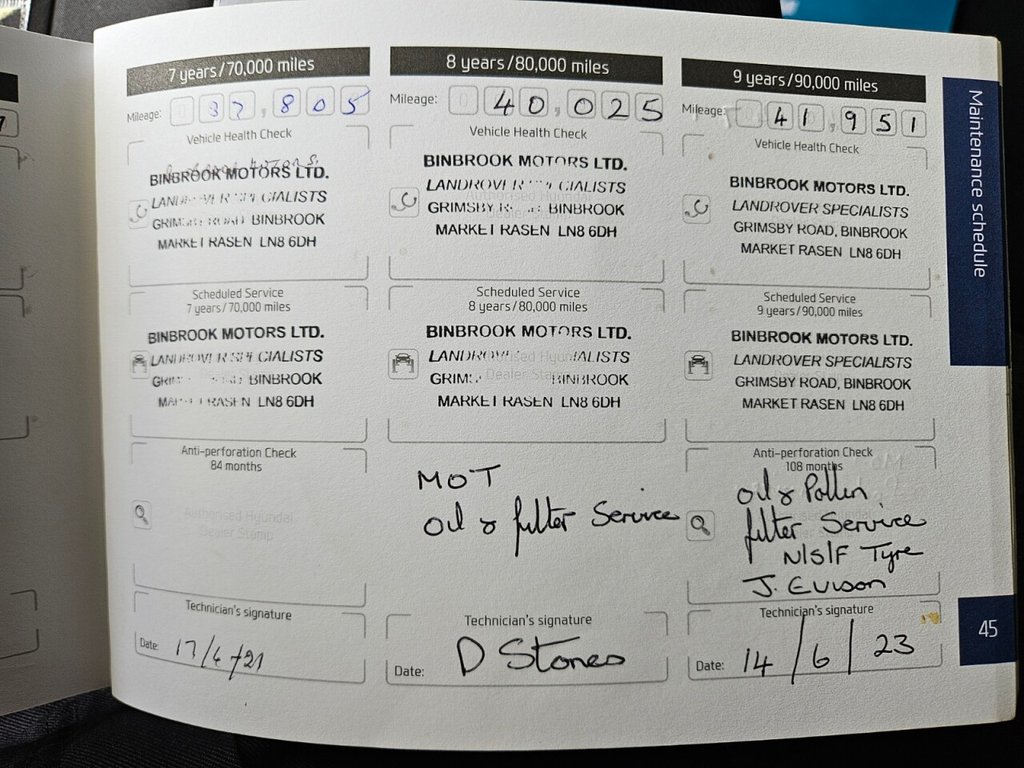 7 years/70,000 miles
Mileage: 0 37,805
Vehicle Health Check
BINBROOK MOTORS LTD.
LANDROVER SPECIALISTS
GRIMSBY ROAD BINBROOK
MARKET RASEN LN8 6DH
Scheduled Service
7 years/70,000 miles
BINBROOK MOTORS LTD.
LANDROVER SPECIALISTS
BINBROOK
MARKET RASEN LN8 6DH
Anti-perforation Check
84 months
Authorised Hyundai
Dealer Stamp
Technician's signature
Date: 17/6/21
8 years/80,000 miles
Mileage: 0 40,025
Vehicle Health Check
BINBROOK MOTORS LTD.
LANDROVER SPECIALISTS
GRIMSBY BINBROOK
MARKET RASEN LN8 6DH
Scheduled Service
8 years/80,000 miles
BINBROOK MOTORS LTD.
LANDROVER SPECIALISTS
BINBROOK
MARKET RASEN LN8 6DH
MOT
Oil & filter Service
Technician's signature
Date: D Stones
9 years/90,000 miles
Mileage: 0 41,951
Vehicle Health Check
BINBROOK MOTORS LTD.
LANDROVER SPECIALISTS
GRIMSBY ROAD, BINBROOK
MARKET RASEN LN8 6DH
Scheduled Service
9 years/90,000 miles
BINBROOK MOTORS LTD.
LANDROVER SPECIALISTS
GRIMSBY ROAD, BINBROOK
MARKET RASEN LN8 6DH
Anti-perforation Check
108 months
Oil & Pollen
filter Service
N/S/F Tyre
J. Evison
Technician's signature
Date: 14/6/23
Maintenance schedule
45